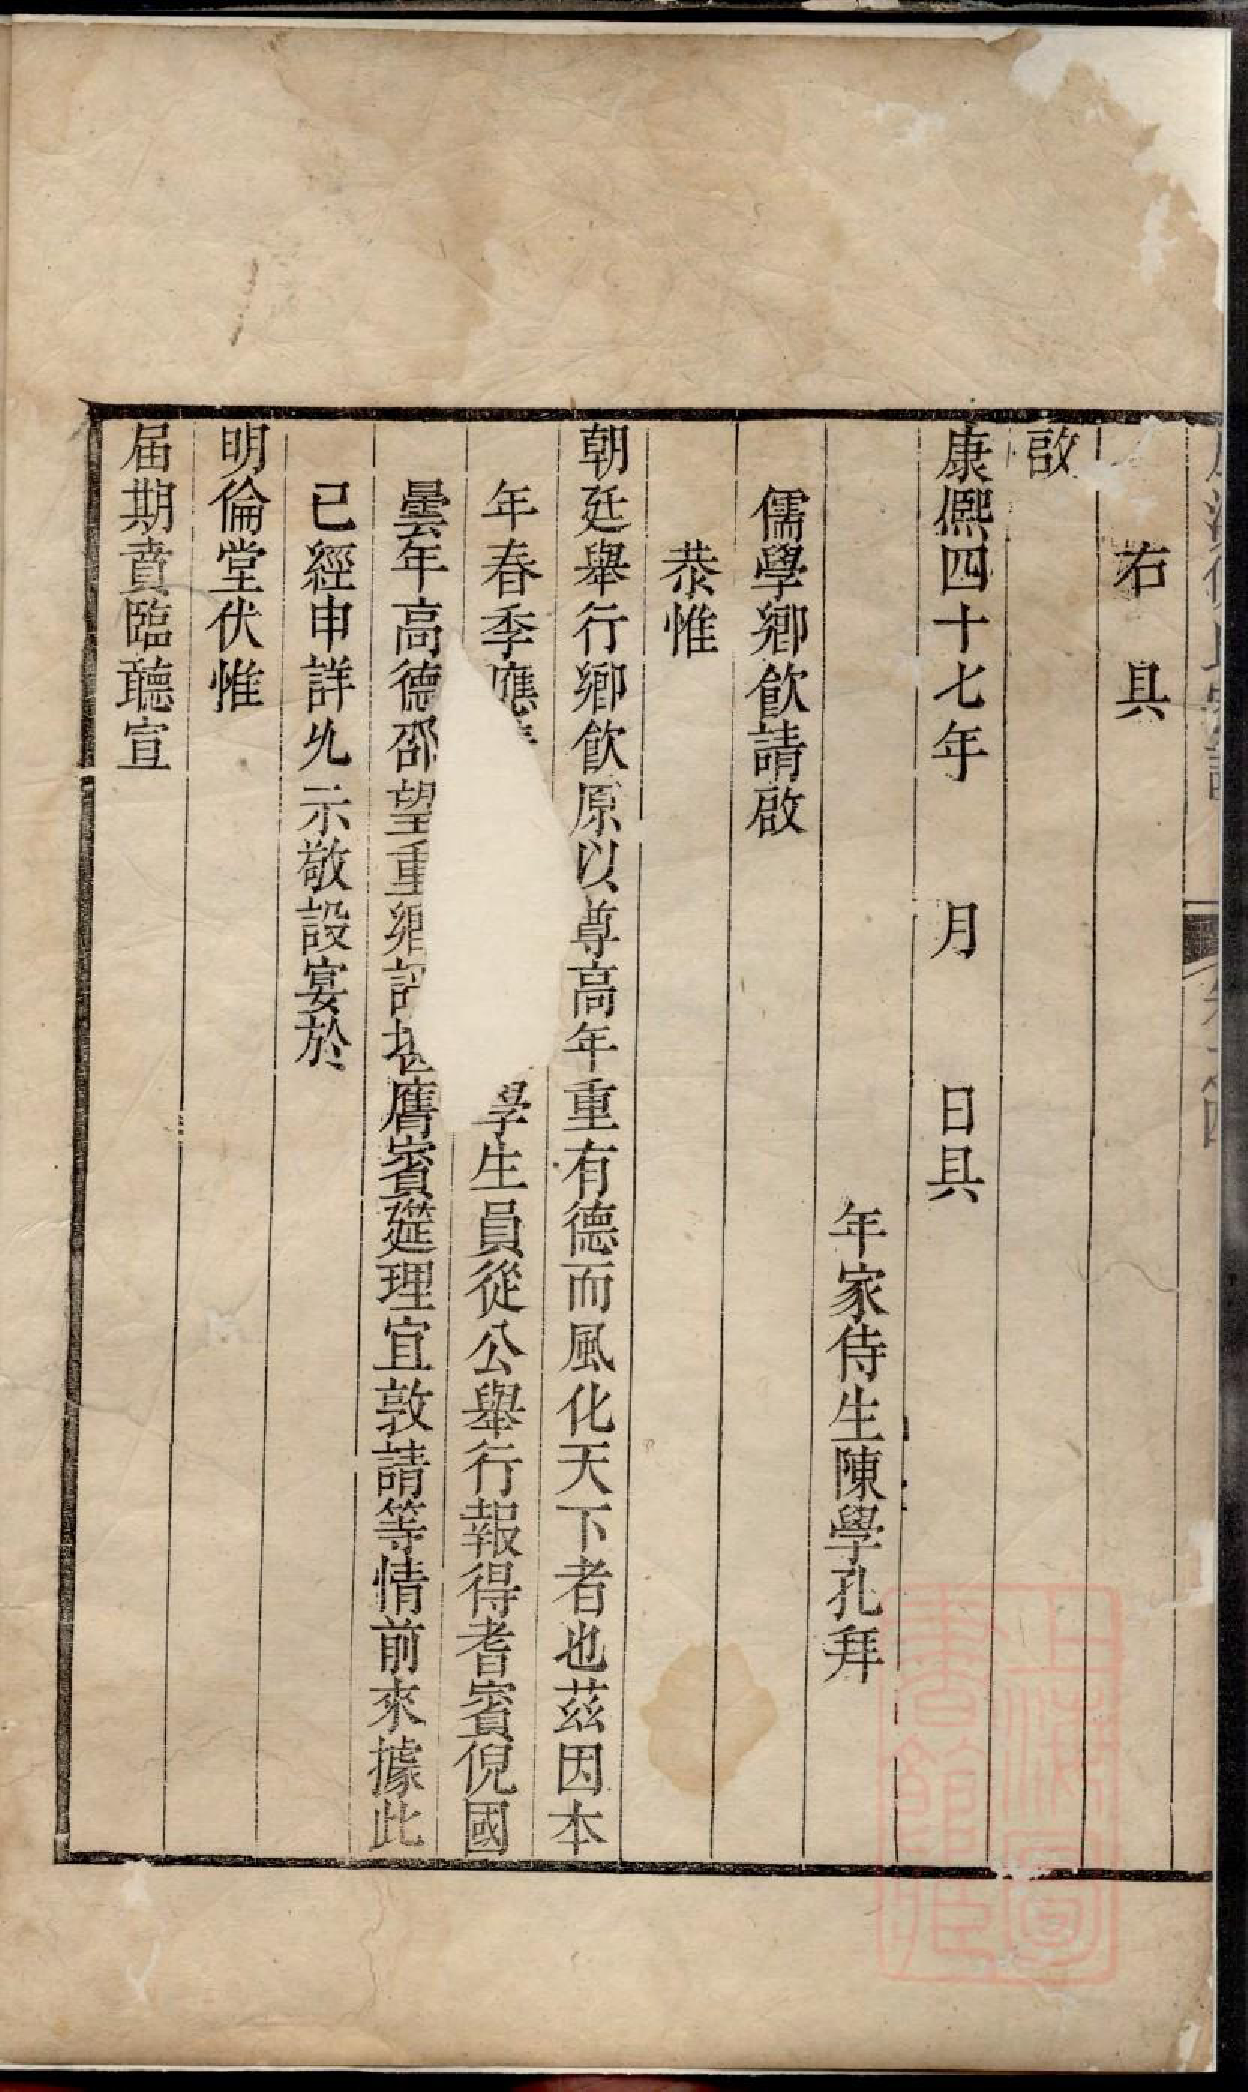 右具
啟
康熙四十七年 月 日具
年家侍生陳學孔拜
儒學鄉飲請啟
恭惟
朝廷舉行鄉飲原以尊高年重有德而風化天下者也茲因本
年春季應 學生員從公舉行報得耆賓倪國
曇年高德邵望重鄉 堪膺賓筵理宜敦請等情前來據此
已經申詳允示敬設宴於
明倫堂伏惟
届期賁臨聽宣
上海圖書館藏